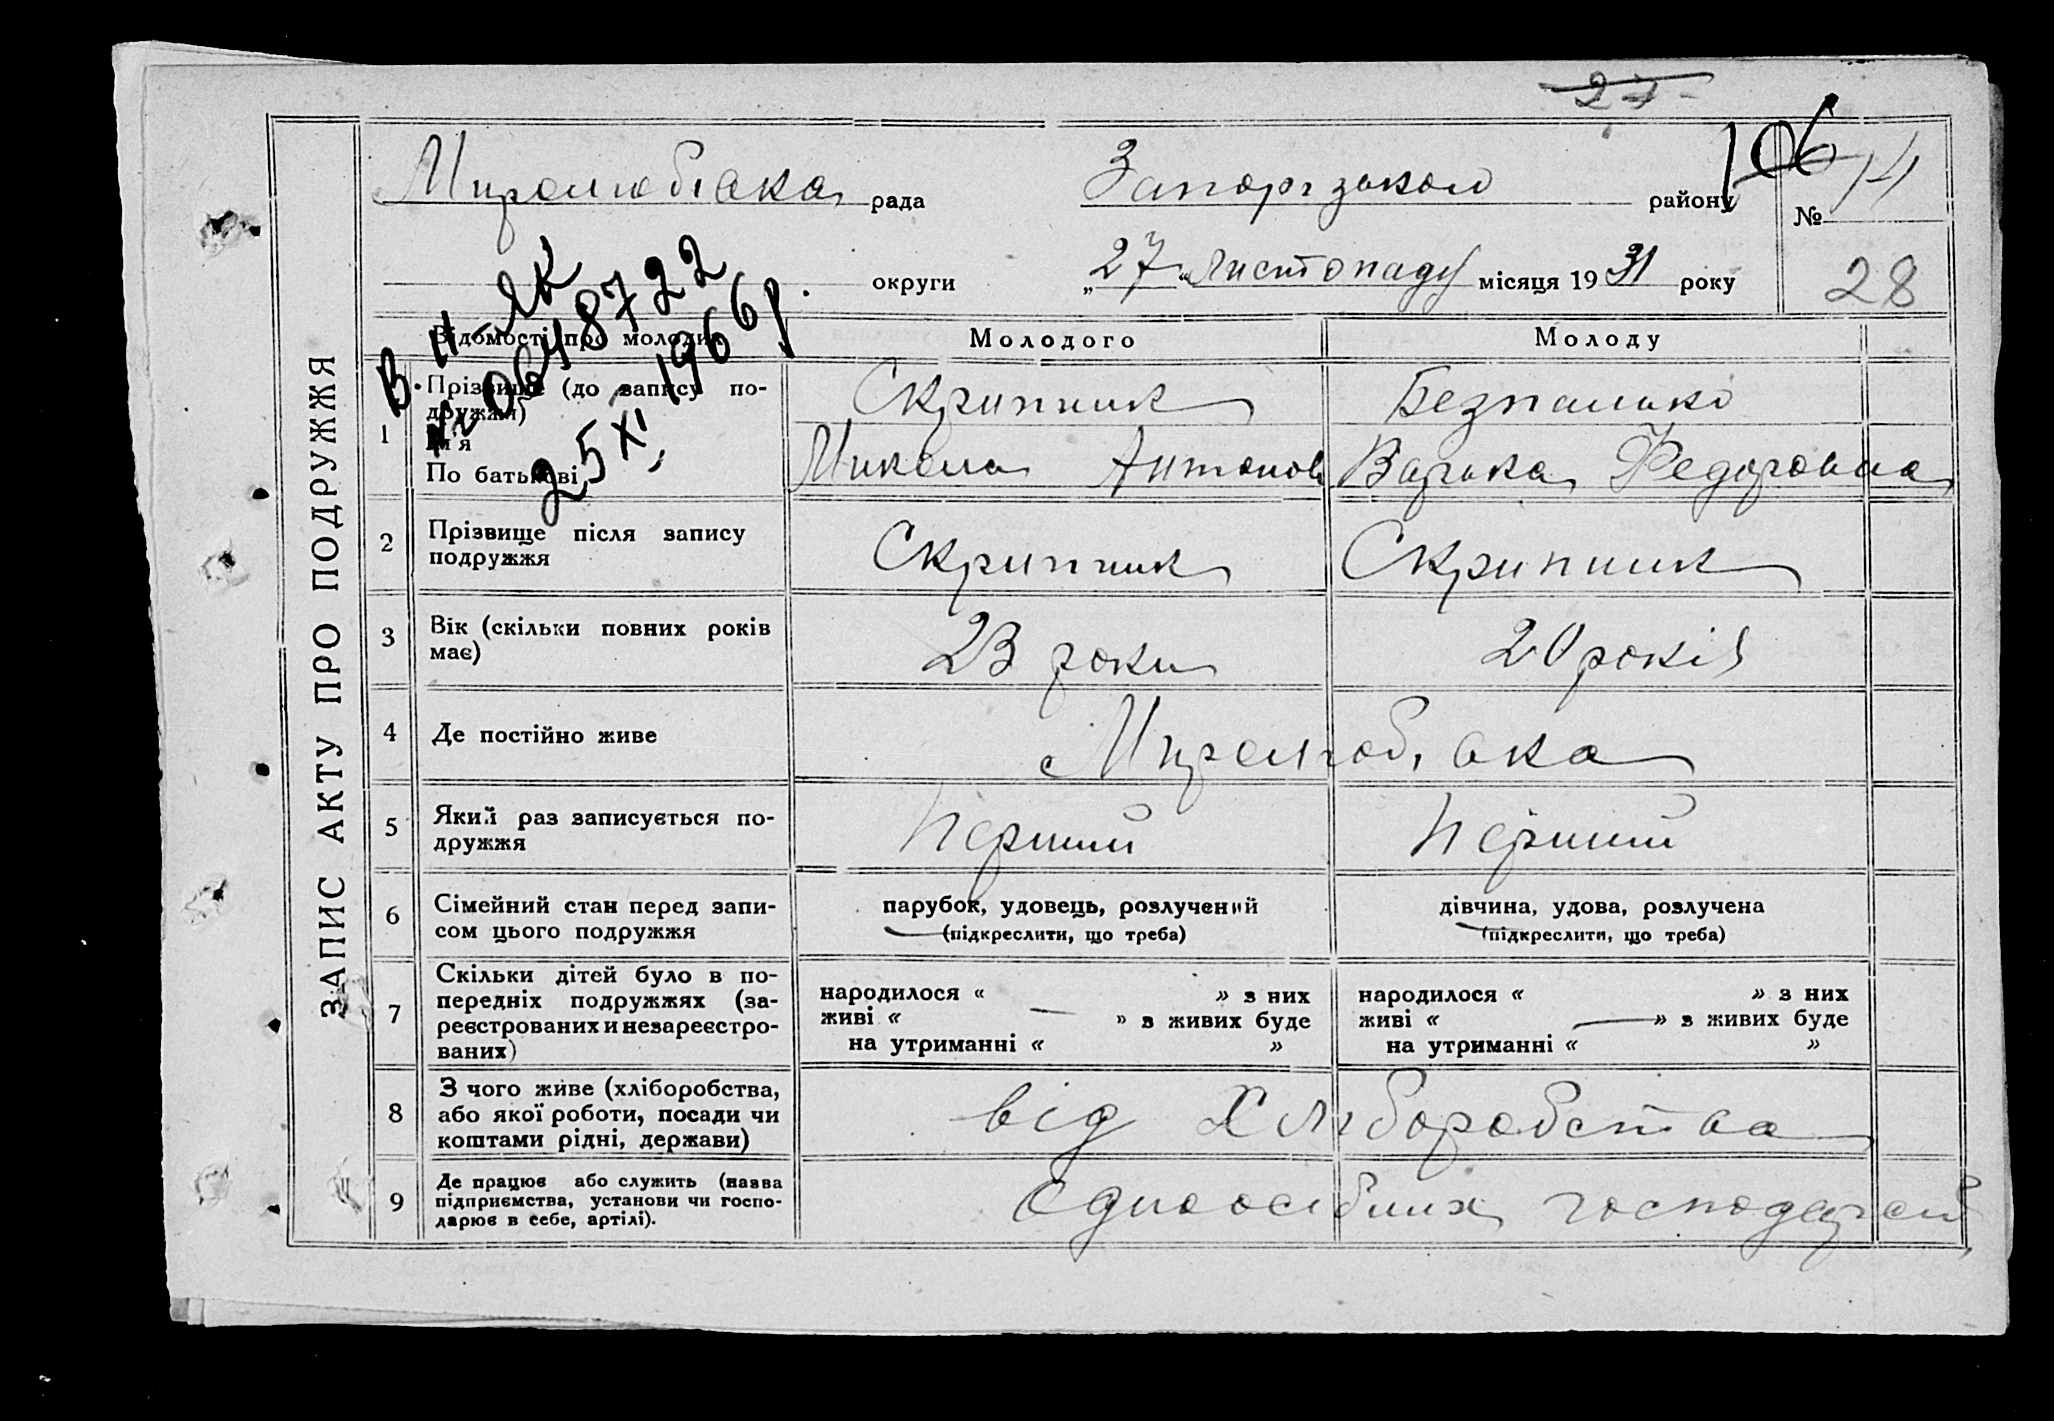 27
Миролюбівка рада Запорізького району
106
№ 14
округи „27“ листопаду місяця 1931 року
28
В. II-ЯК
№ 0648722
25 XI 1966 р.
ЗАПИС АКТУ ПРО ПОДРУЖЖЯ
Відомості про молодих Молодого Молоду
1 Прізвище (до запису по-
дружжя) Скрипник Безпалько
Ім'я
По батькові Микола Антонов Варька Федоровна
2 Прізвище після запису
подружжя Скрипник Скрипник
3 Вік (скільки повних років
має) 23 роки 20 років
4 Де постійно живе Миролюбівка
5 Який раз записується по-
дружжя Перший Перший
6 Сімейний стан перед запи-
сом цього подружжя
парубок, удовець, розлучений дівчина, удова, розлучена
(підкреслити, що треба) (підкреслити, що треба)
7 Скільки дітей було в по-
передніх подружжях (за-
реєстрованих и незареєстро-
ваних)
народилося « » з них народилося « » з них
живі « — » з живих буде живі « — » з живих буде
на утриманні « » на утриманні « »
8 З чого живе (хліборобства,
або якої роботи, посади чи
коштами рідні, держави) від Хліборобства
9 Де працює або служить (назва
підприємства, установи чи госпо-
дарює в себе, артілі). Одноосібних господарств